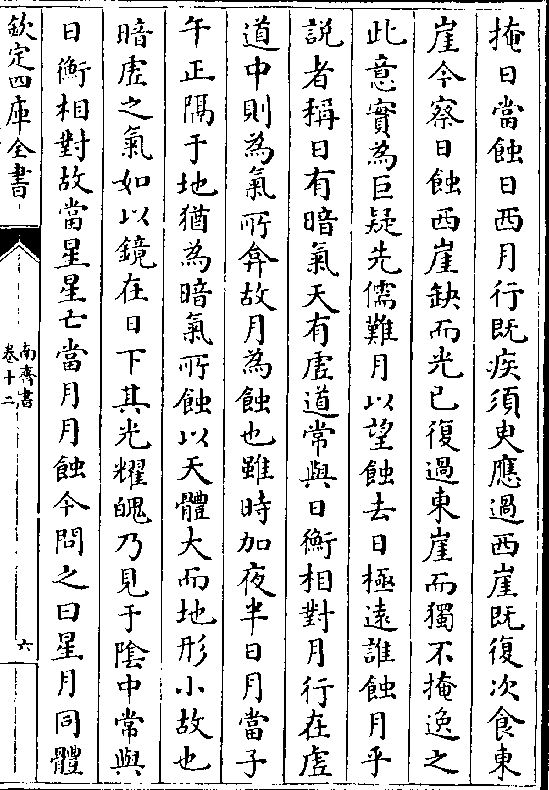 掩日當蝕日西月行既疾須臾應過西崖既復次食東
崖今察日蝕西崖缺而光已復過東崖而獨不掩逸之
此意實為巨疑先儒難月以望蝕去日極遠誰蝕月乎
說者稱日有暗氣天有虛道常與日衡相對月行在虛
道中則為氣所弇故月為蝕也雖時加夜半日月當子
午正隔于地猶為暗氣所蝕以天體大而地形小故也
暗虛之氣如以鏡在日下其光耀魄乃見于陰中常與
日衡相對故當星星亡當月月蝕今問之曰星月同體
欽定四庫全書
南齊書
卷十二
六